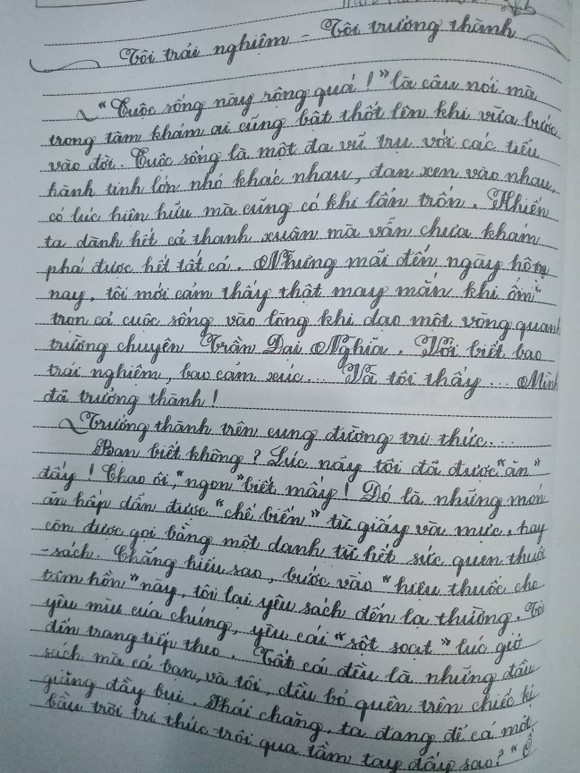 Tôi trải nghiệm - Tôi trưởng thành
"Cuộc sống này rộng quá!" là câu nói mà
trong tâm khảm ai cũng bật thốt lên khi vừa bước
vào đời. Cuộc sống là một đa vũ trụ với các tiểu
hành tinh lớn nhỏ khác nhau, đan xen vào nhau,
có lúc hiện hữu mà cũng có khi lẩn trốn. Khiến
ta dành hết cả thanh xuân mà vẫn chưa khám
phá được hết tất cả. Nhưng mãi đến ngày hôm
nay, tôi mới cảm thấy thật may mắn khi "ôm"
trọn cả cuộc sống vào lòng khi dạo một vòng quanh
trường chuyên Trần Đại Nghĩa. Với biết bao
trải nghiệm, bao cảm xúc... Và tôi thấy... Mình
đã trưởng thành!
Trưởng thành trên cung đường tri thức...
Bạn biết không? Lúc nãy tôi đã được "ăn"
đấy! Chao ôi, "ngon" biết mấy! Đó là những món
ăn hấp dẫn được "chế biến" từ giấy và mực, hay
còn được gọi bằng một danh từ hết sức quen thuộc
- sách. Chẳng hiểu sao, bước vào "hiệu thuốc cho
tâm hồn" này, tôi lại yêu sách đến lạ thường. Tôi
yêu mùi của chúng, yêu cái "sột soạt" lúc giở
đến trang tiếp theo. Tất cả đều là những đầu
sách mà cả bạn, và tôi, đều bỏ quên trên chiếc kệ
giăng đầy bụi. Phải chăng, ta đang để cả một
bầu trời tri thức trôi qua tầm tay đấy sao? "Ồ